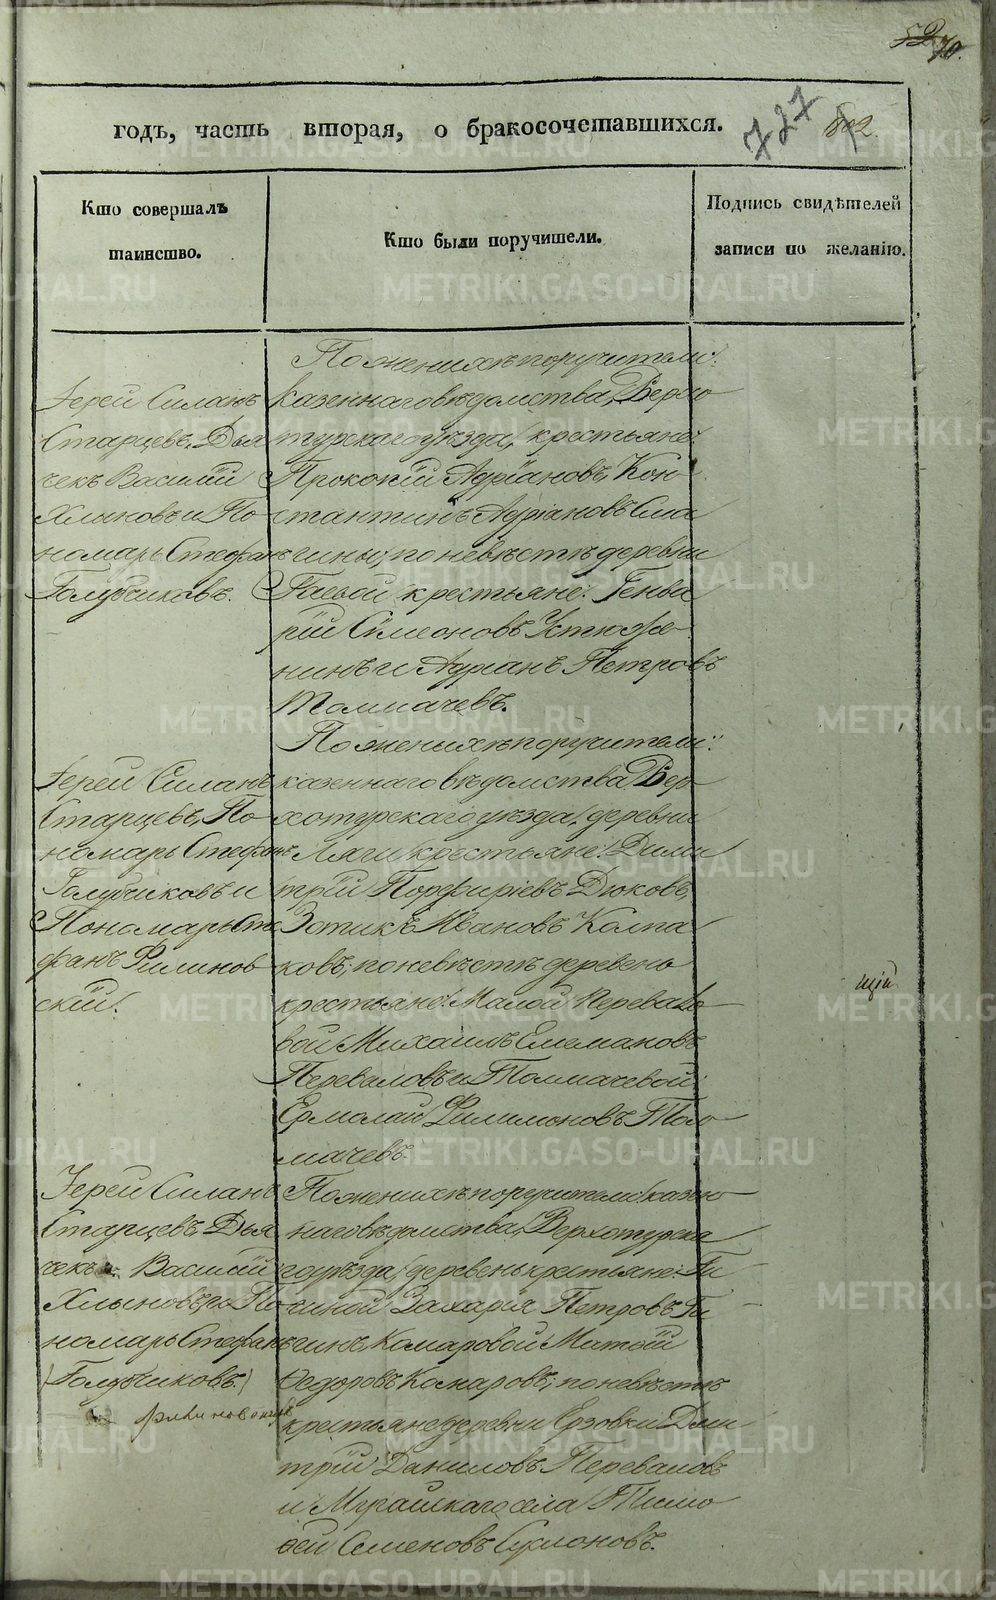 52 70.
годъ, часть вторая, о бракосочетавшихся. 727 802.
Кто совершалъ
таинство.
Кто были поручители.
Подпись свидѣтелей
записи по желанію.
Іерей Силанъ
Старцевъ, Дья
чекъ Василій
Хлыновъ и По
номарь Стефанъ
Голубчиковъ.
По женихѣ поручители:
казеннаго вѣдомства, Верхо
турскаго уѣзда, крестьяне:
Прокопій Адріановъ, Кон
стантинъ Адріановъ
по невѣстѣ деревни
Гаевой крестьяне: Генва
рій Симеоновъ Устюжа
нинъ и Адріанъ Петровъ
Толмачевъ.
Іерей Силанъ
Старцевъ, По
номарь Стефанъ
Голубчиковъ и
Пономарь Сте
фанъ Филинов
скій.
По женихѣ поручители:
казеннаго вѣдомства, Вер
хотурскаго уѣзда, деревни
Ляги крестьяне: Дими
трій Порфиріевъ Дюковъ,
Зотикъ Ивановъ Колпа
ковъ; по невѣстѣ деревень
крестьяне: Малой Перевало
вой Михаилъ
Переваловъ и Толмачевой
Ермолай Филимоновъ Тол
мачевъ.
Іерей Силанъ
Старцевъ, Дья
чекъ Василій
Хлыновъ и По
номарь Стефанъ
(Голубчиковъ.)
По женихѣ поручители казен
наго вѣдомства, Верхотурска
го уѣзда, деревень крестьяне:
Захарія Петровъ
Комаровой
Ѳедоровъ Комаровъ; по невѣстѣ
крестьяне деревни Ерзовки Дми
трій Даниловъ Переваловъ
и Мугайскаго села Тимо
ѳей Семеновъ
цій
METRIKI.GASO-URAL.RU